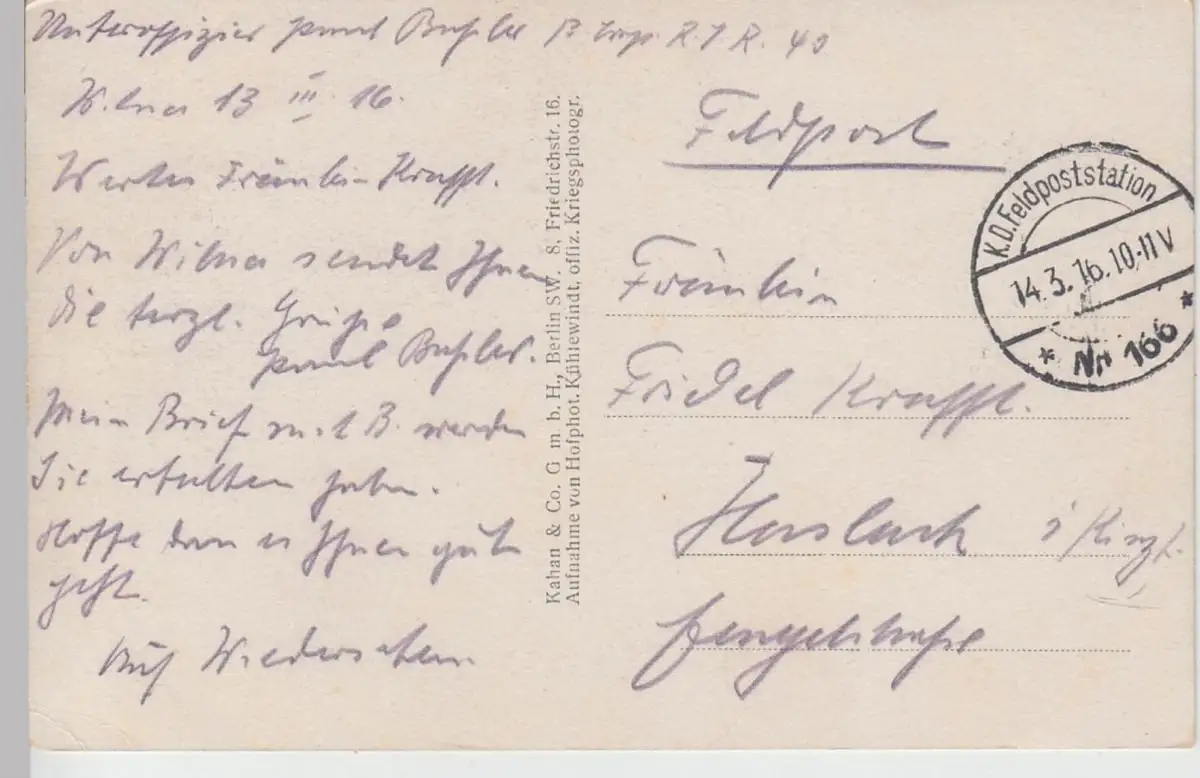 Unteroffizier Paul Buhler 13 Comp. R. I R. 40
Wilna 13 III 16.
Wertes Fräulein Krafft.
Von Wilna sendet Ihnen
die herzl. Grüße
Paul Buhler.
Mein Brief mit B. werden
Sie erhalten haben.
Hoffe dass es Ihnen gut
geht.
Auf Wiedersehen.
Kahan & Co. G m b. H., Berlin SW. 8, Friedrichstr. 16.
Aufnahme von Hofphot. Kühlewindt, offiz. Kriegsphotogr.
Feldpost
K.D. Feldpoststation
14.3.16.10-11V
* Nr 166 *
Fräulein
Fridel Krafft.
Haslach i/Kinzt.